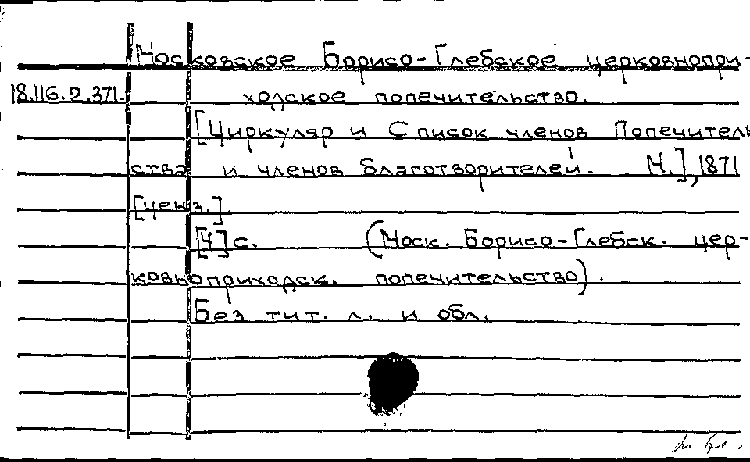 Московское Борисо-Глебское церковнопри-
18.116.2.371. ходское попечительство.
[Циркуляр и Список членов Попечитель
ства и членов благотворителей. М.], 1871
[ценз.]
[4] с. (Моск. Борисо-Глебск. цер-
ковноприходск. попечительство).
Без тит. л. и обл.